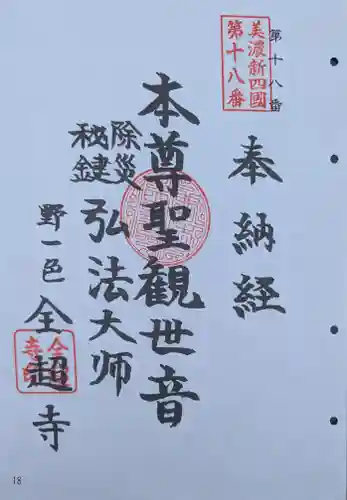 第十八番
美濃新四國
第十八番
奉納経
本尊聖観世音
除災
秘鍵
弘法大師
野一色
全超寺
18